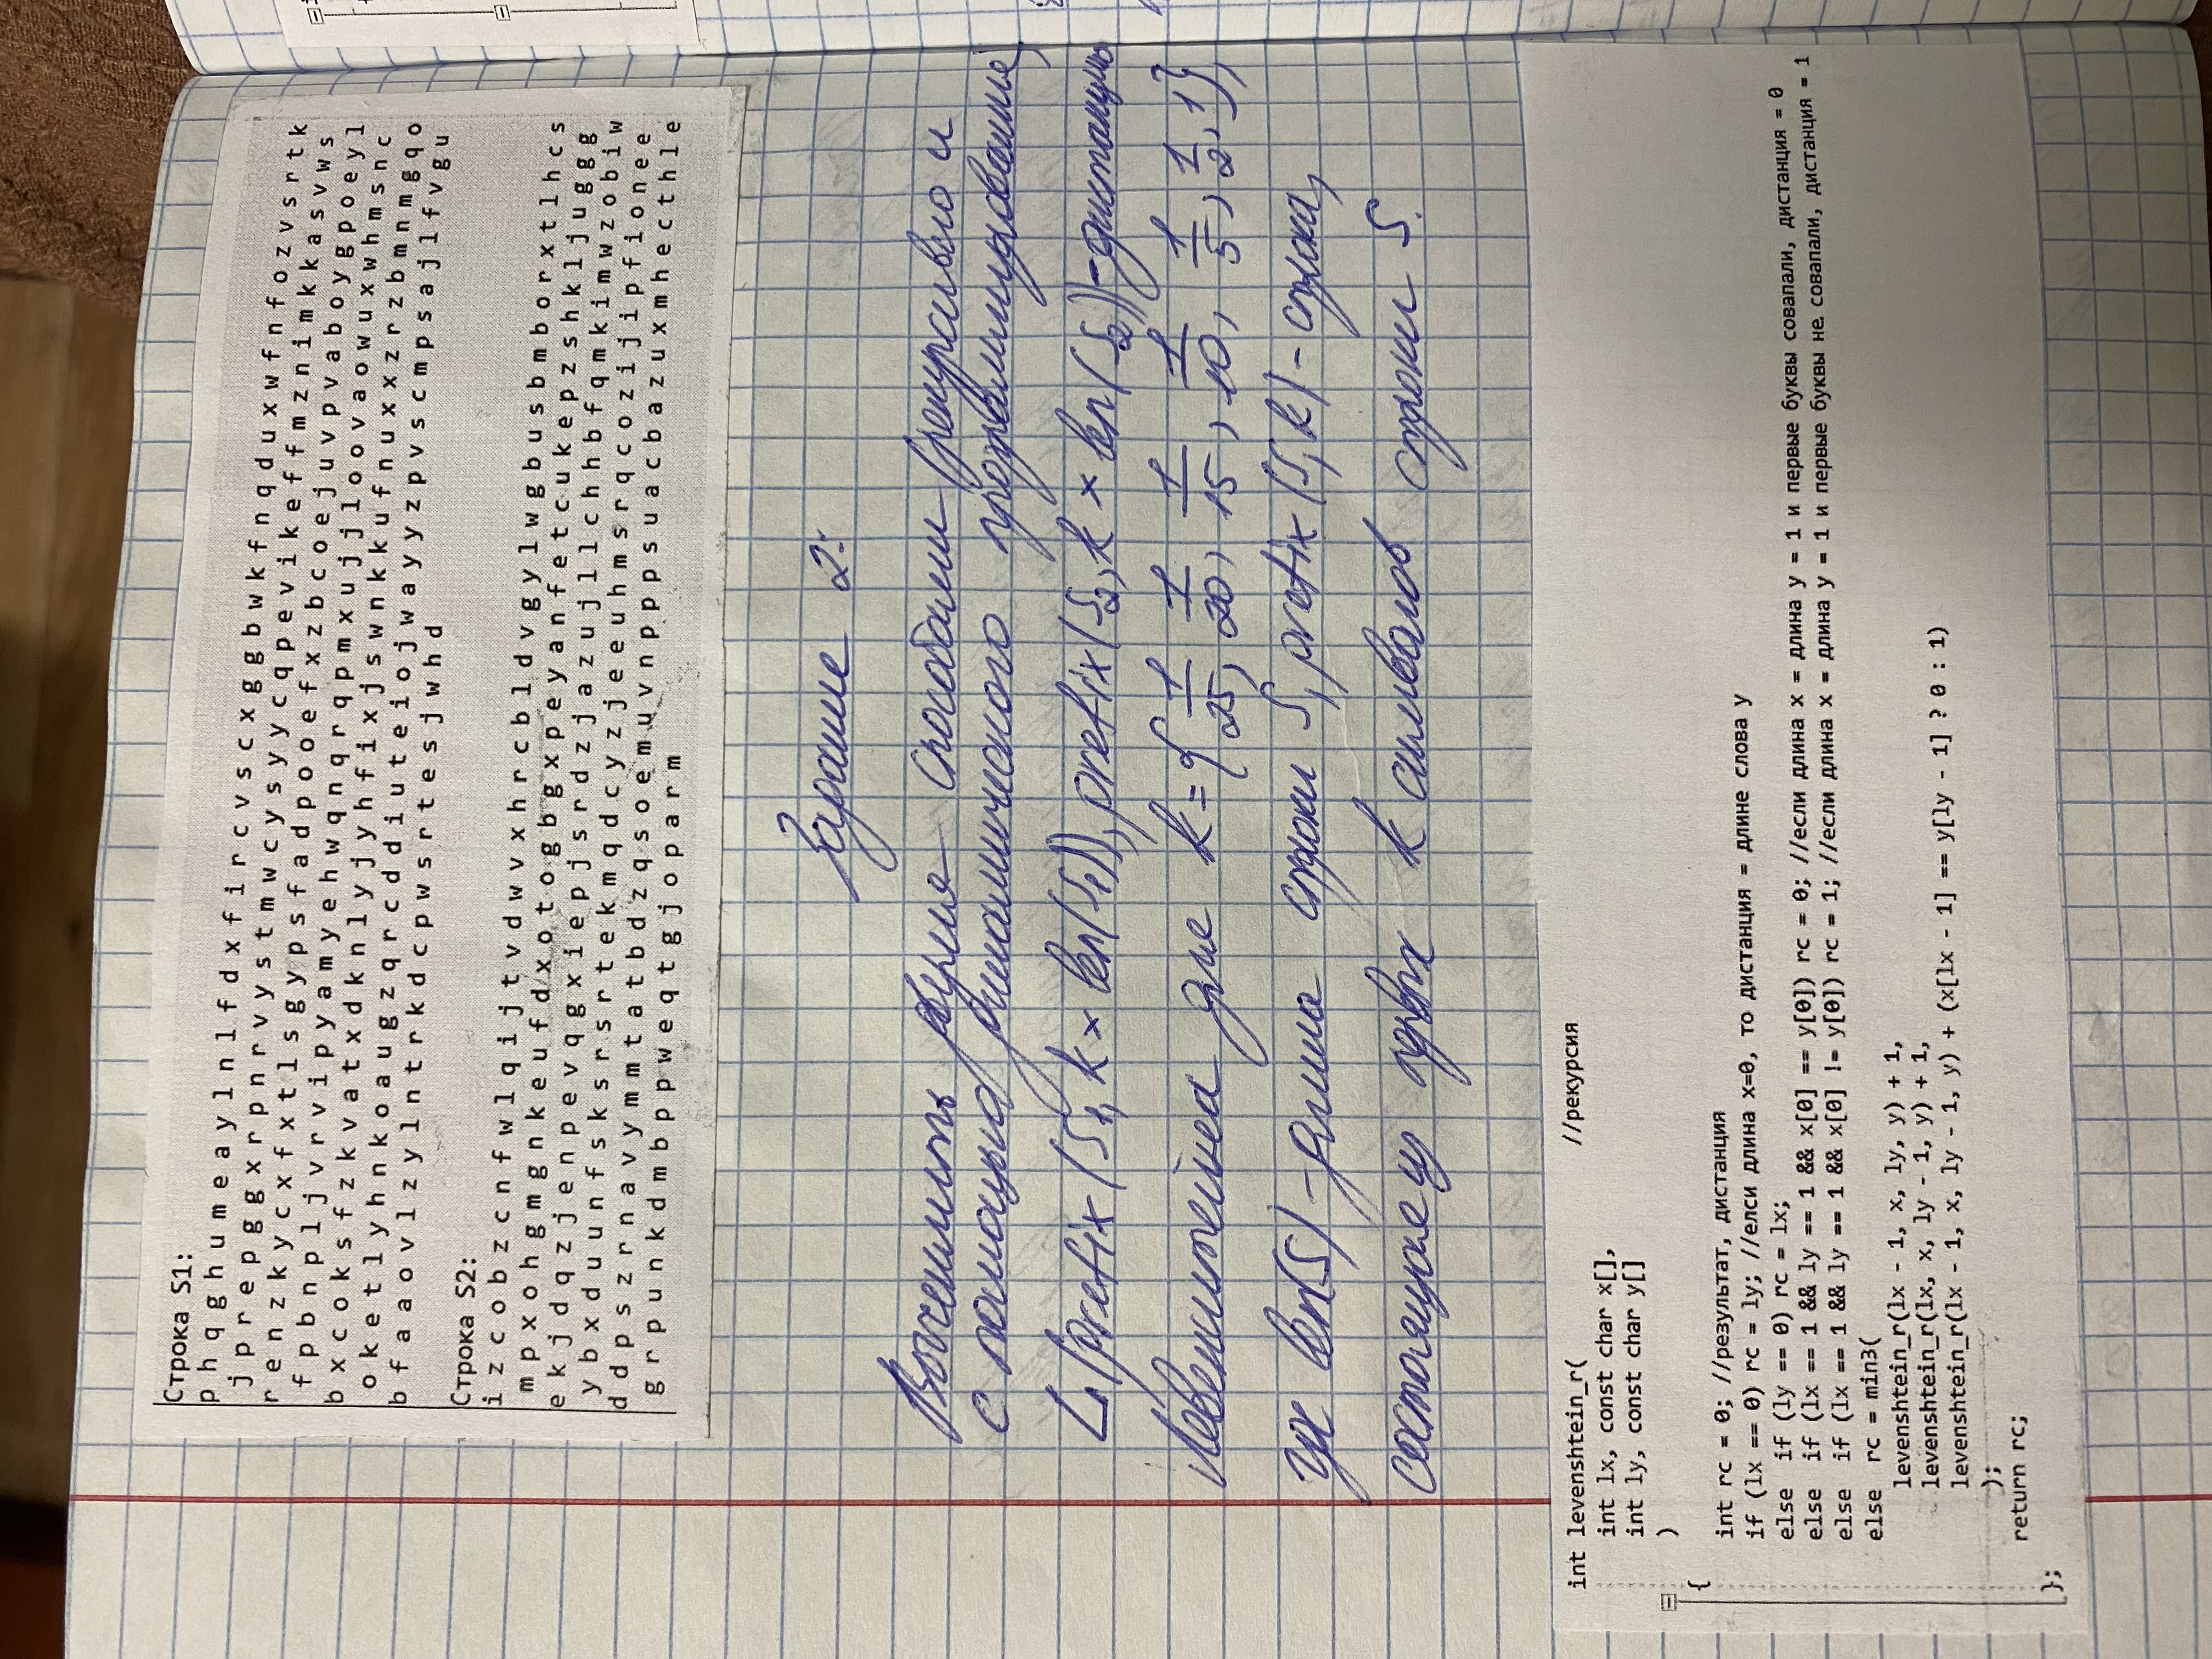 Строка S1:
p h q g h u m e a y l n l f d x f i r c v s c x g g b w k f n q d u x w f n f o z v s r t k
j p r e p g g x r p n r v y s t m w c y s y y c q p e v i k e f f m z n i m k k a s v w s
r e n z k y c x f x t l s g y p s f a d p o o e f x z b c o e j u v p v a b o y g p o e y l
f p b n p l j v r v i p y a m y e h w q n q r q p m x u j j l o o v a o w u x w h m s n c
b x c o k s f z k v a t x d k n l y j y h f i x j s w n k k u f n u x x z r z b m n m g q o
o k e t l y h n k o a u g z q r c d d i u t e i o j w a y y z p v s c m p s a j l f v g u
b f a a o v l z y l n t r k d c p w s r t e s j w h d
Строка S2:
i z c o b z c n f w l q i j t v d w v x h r c b l d v g y l w g b u s b m b o r x t l h c s
m p x o h g m g n k e u f d x o t o g b g x p e y a n f e t c u k e p z s h k l j u g g g
e k j d q z j e n p e v q g x i e p j s r d z j a z u j l l c h h b f q m k i m w z o b i w
y b x d u u n f s k s r s r t e k m q d c y z j e e u h m s r q c o z i j i p f i o n e e
d d p s z r n a v y m m t a t b d z q s o e m u v n p p p s u a c b a z u x m h e c t h l e
g r p u n k d m b p p w e q t g j o p a r m
Задание 2:
Вычислить двумя способами (рекурсивно и
с помощью динамического программирования)
L(prefix(S1, k × len(S1)), prefix(S2, k × len(S2)) - дистанцию
Левенштейна для k = {1/25, 1/20, 1/15, 1/10, 1/5, 1/2, 1},
где len(S) - длина строки S, prefix(S, k) - строка,
состоящая из первых k символов строки S.
int levenshtein_r( //рекурсия
int lx, const char x[],
int ly, const char y[]
)
{
int rc = 0; //результат, дистанция
if (lx == 0) rc = ly; //елси длина x=0, то дистанция = длине слова y
else if (ly == 0) rc = lx;
else if (lx == 1 && ly == 1 && x[0] == y[0]) rc = 0; //если длина x = длина y = 1 и первые буквы совапали, дистанция = 0
else if (lx == 1 && ly == 1 && x[0] != y[0]) rc = 1; //если длина x = длина y = 1 и первые буквы не совапали, дистанция = 1
else rc = min3(
levenshtein_r(lx - 1, x, ly, y) + 1,
levenshtein_r(lx, x, ly - 1, y) + 1,
levenshtein_r(lx - 1, x, ly - 1, y) + (x[lx - 1] == y[ly - 1] ? 0 : 1)
);
return rc;
};